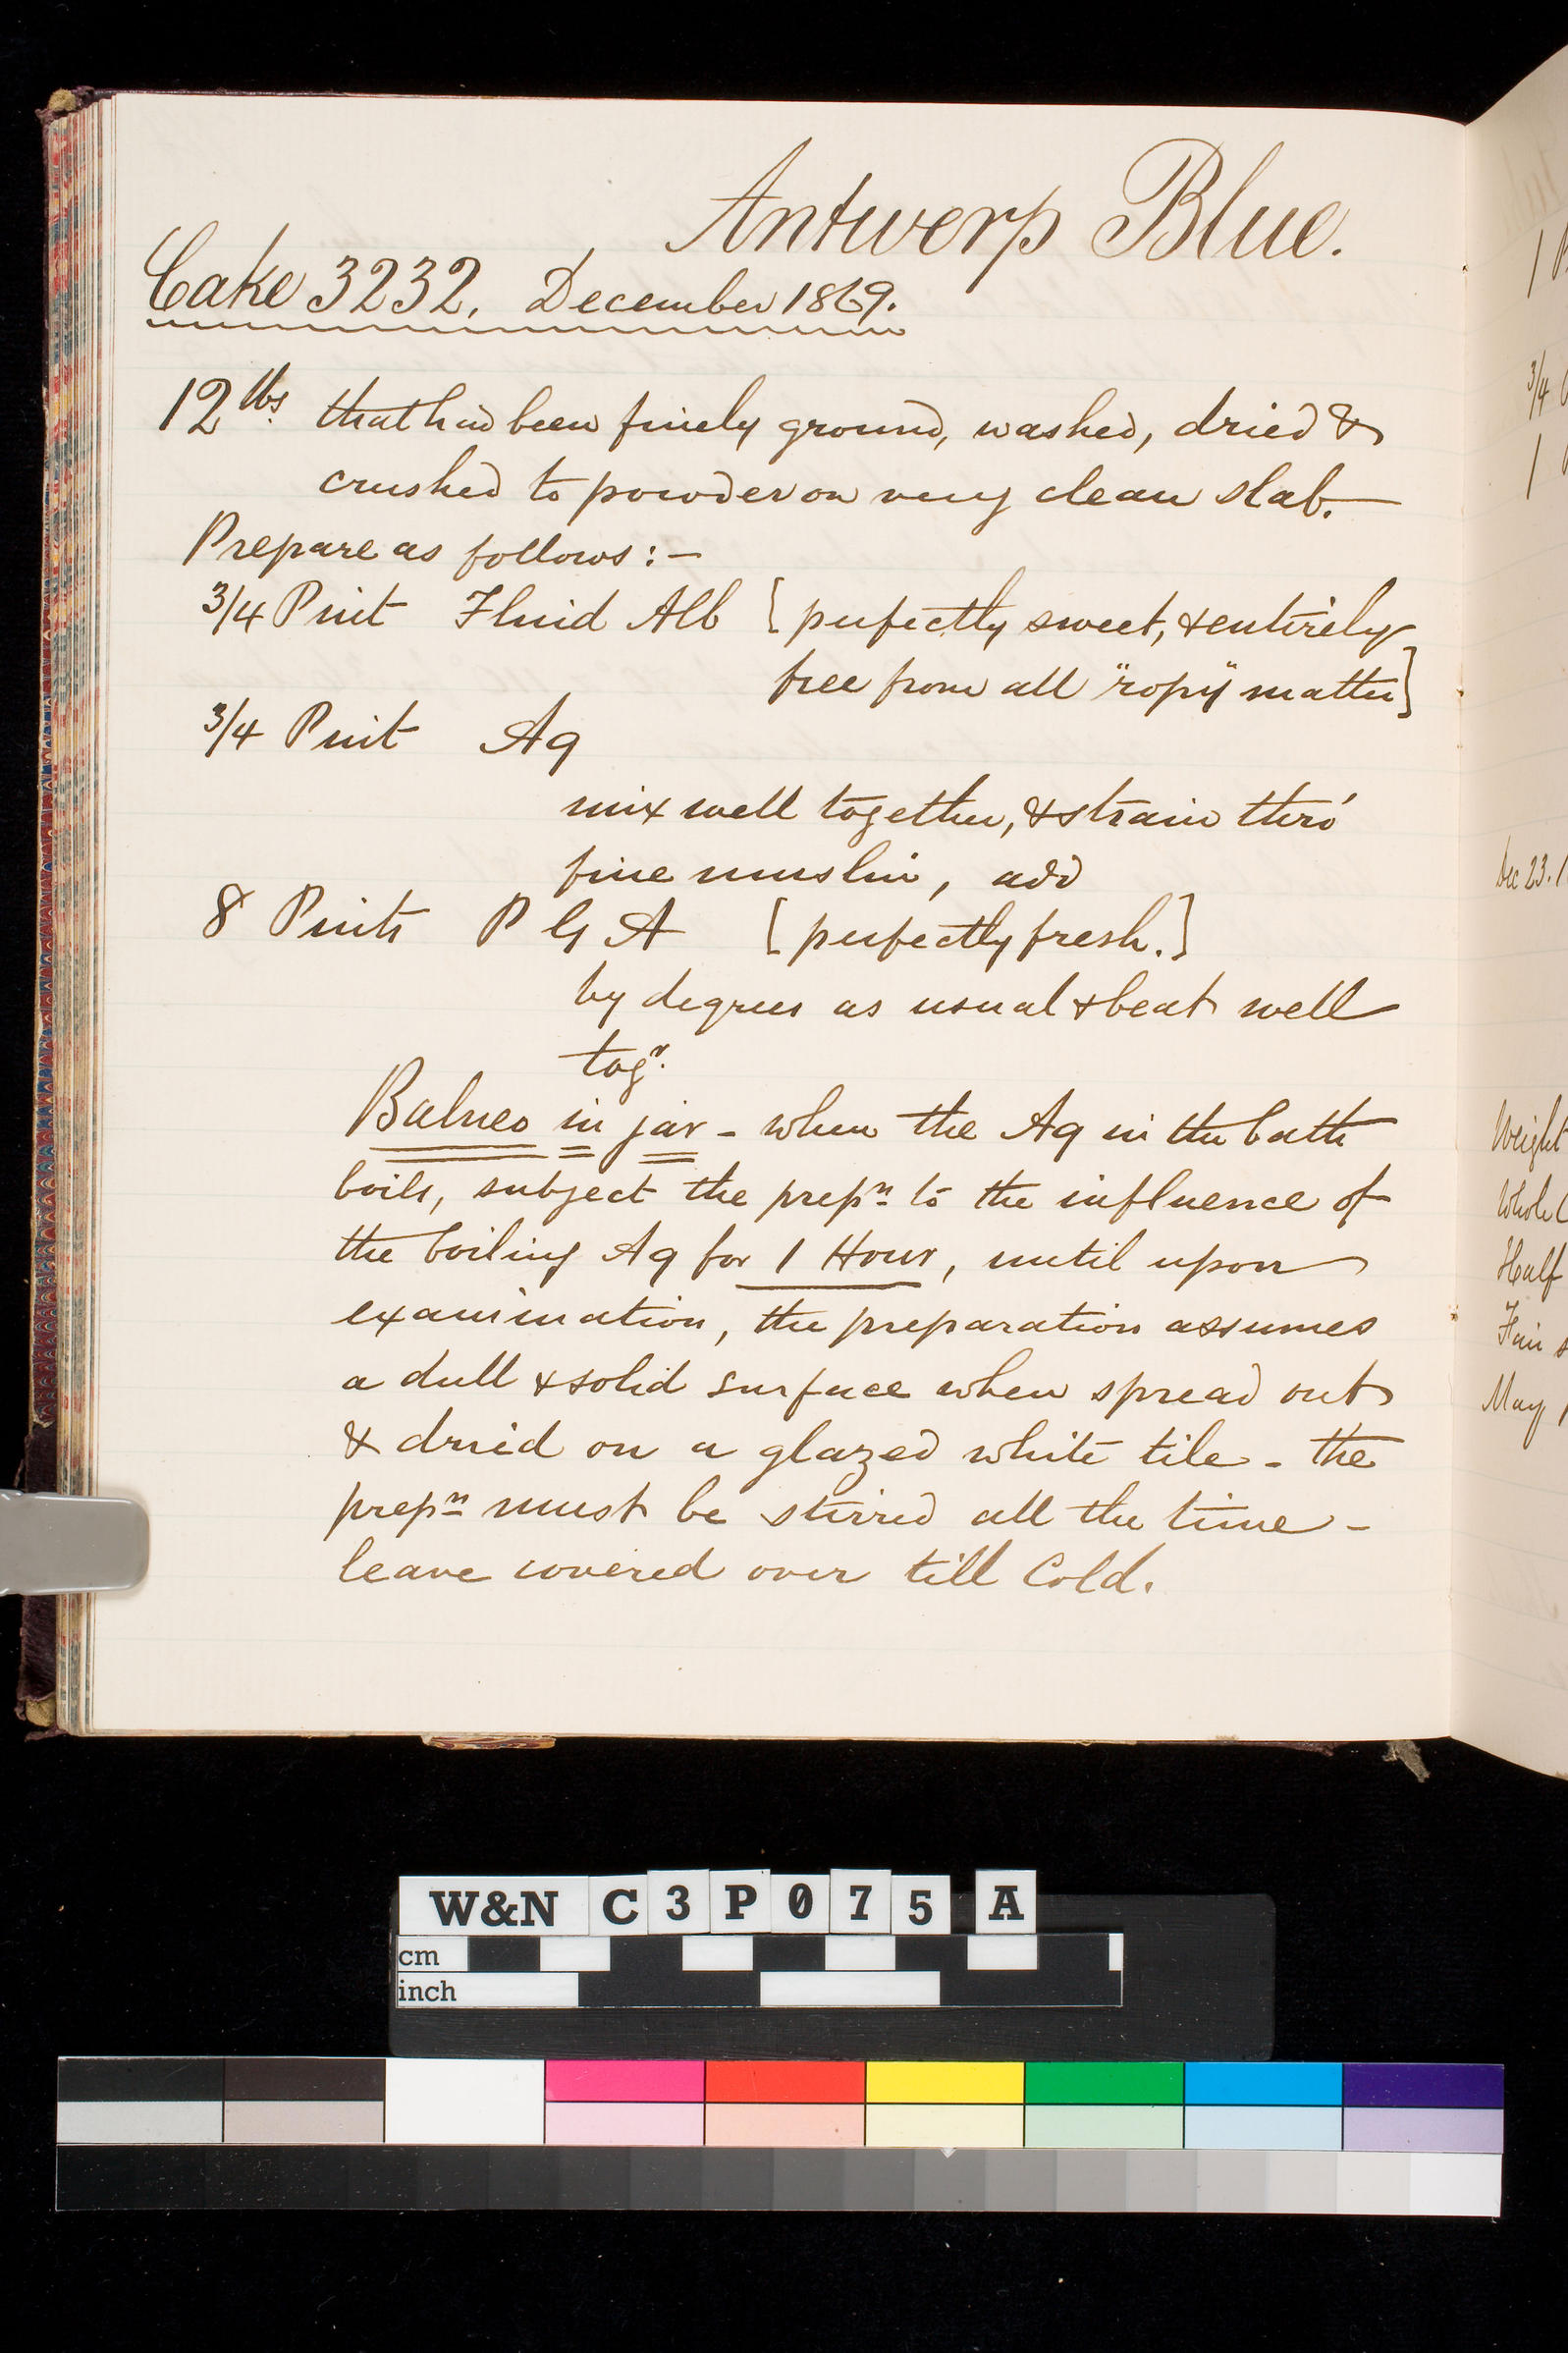 Antwerp Blue.
Cake 3232. December 1869.
12 lbs. that had been finely ground, washed, dried &
crushed to powder on very clean slab.—
Prepare as follows:—
3/4 Pint Fluid Alb [perfectly sweet, & entirely
free from all "ropy" matter]
3/4 Pint Aq
mix well together, & strain thro'
fine muslin, add
8 Pints P G A [perfectly fresh.]
by degrees as usual & beat well
togr.
Balneo in jar - when the Aq in the bath
boils, subject the prepn to the influence of
the boiling Aq for 1 Hour, until upon
examination, the preparation assumes
a dull & solid surface when spread out
& dried on a glazed white tile - the
prepn must be stirred all the time -
leave covered over till Cold.
3/4
1
Dec 23. 1
Weight
Whole
Half
Fair
May
W&N C3P075 A
cm
inch